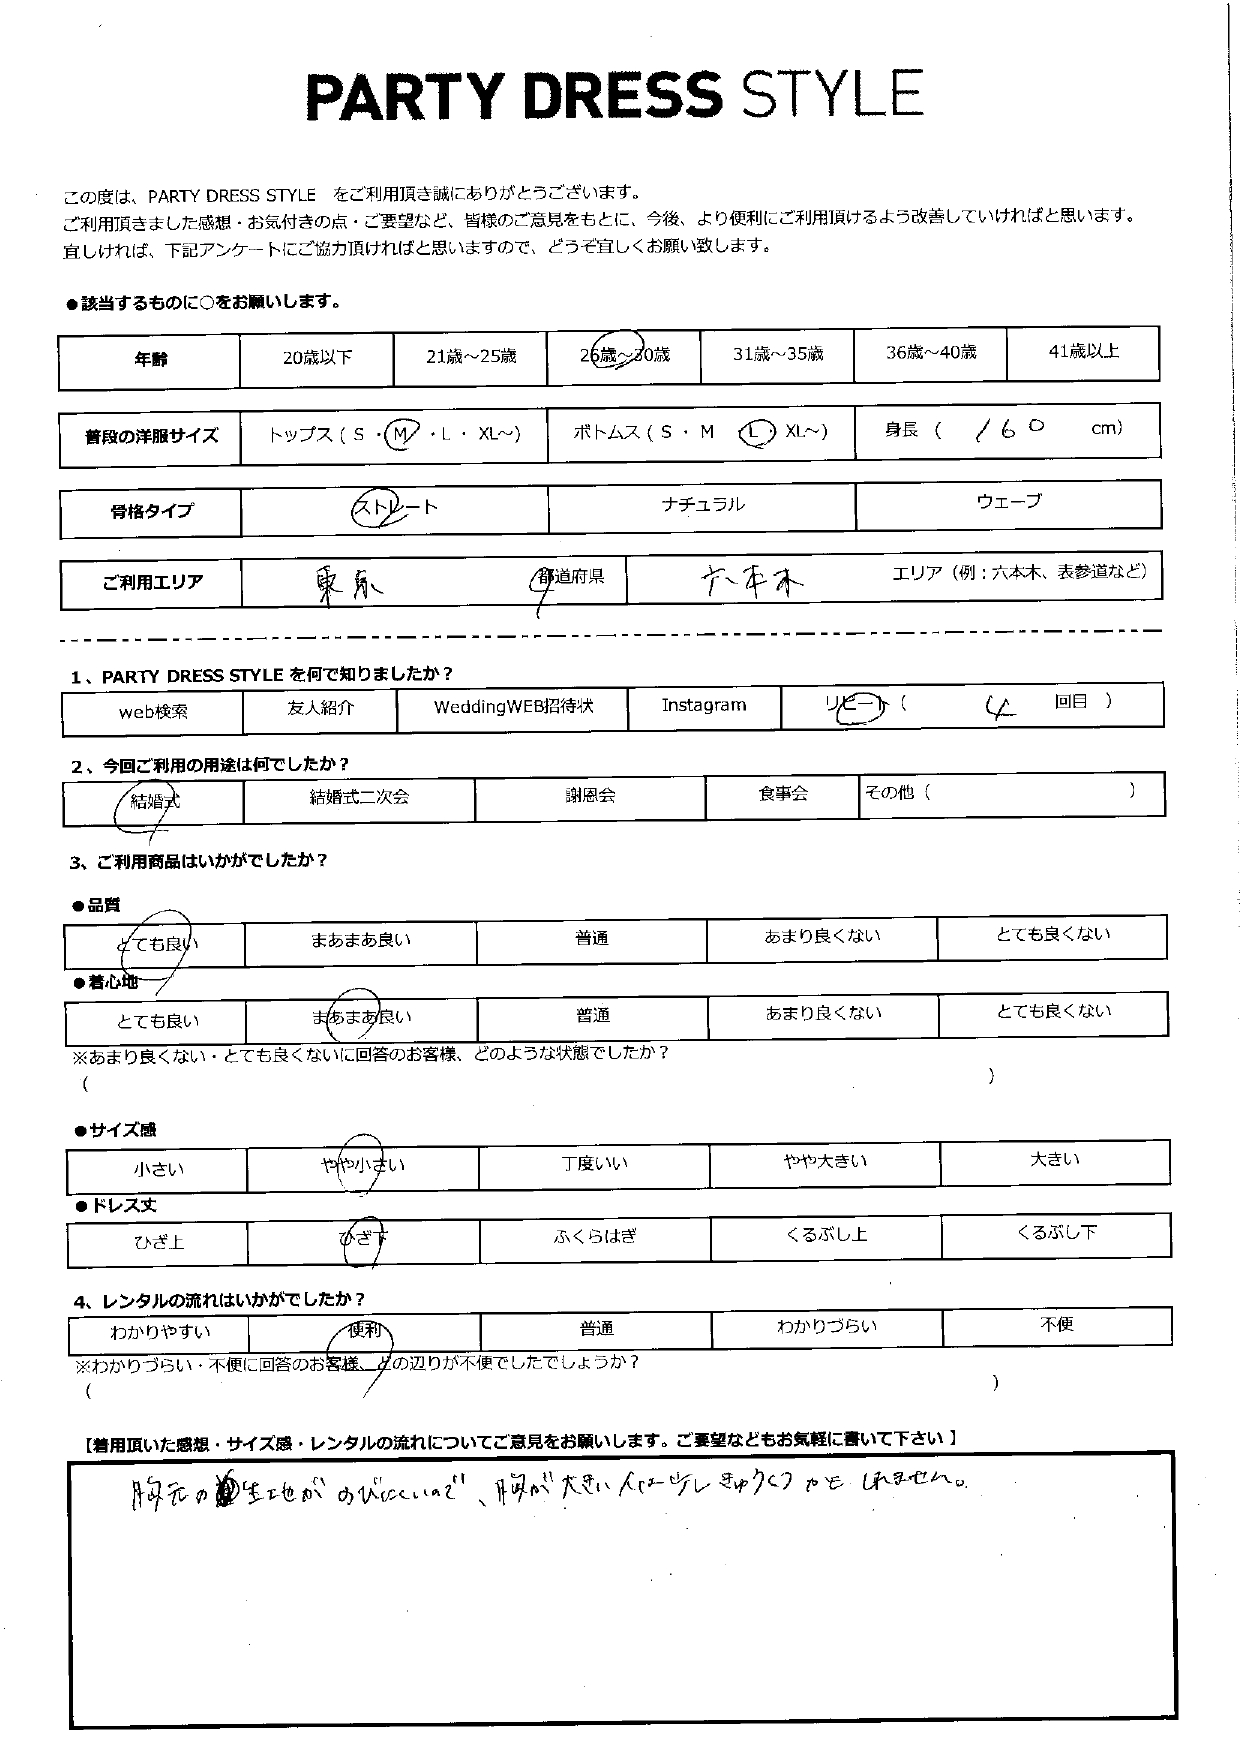 PARTY DRESS STYLE
この度は、PARTY DRESS STYLE をご利用頂き誠にありがとうございます。
ご利用頂きました感想・お気付きの点・ご要望など、皆様のご意見をもとに、今後、より便利にご利用頂けるよう改善していければと思います。
宜しければ、下記アンケートにご協力頂ければと思いますので、どうぞ宜しくお願い致します。
●該当するものに○をお願いします。
年齢 20歳以下 21歳～25歳 26歳～30歳 31歳～35歳 36歳～40歳 41歳以上
普段の洋服サイズ トップス（ S ・ M ・ L ・ XL～） ボトムス（ S ・ M L XL～） 身長（ 160 cm）
骨格タイプ ストレート ナチュラル ウェーブ
ご利用エリア 東京 都道府県 六本木 エリア（例：六本木、表参道など）
1、PARTY DRESS STYLE を何で知りましたか？
web検索 友人紹介 WeddingWEB招待状 Instagram リピート（ 4 回目 ）
2、今回ご利用の用途は何でしたか？
結婚式 結婚式二次会 謝恩会 食事会 その他（ ）
3、ご利用商品はいかがでしたか？
●品質
とても良い まあまあ良い 普通 あまり良くない とても良くない
●着心地
とても良い まあまあ良い 普通 あまり良くない とても良くない
※あまり良くない・とても良くないに回答のお客様、どのような状態でしたか？
（ ）
●サイズ感
小さい やや小さい 丁度いい やや大きい 大きい
●ドレス丈
ひざ上 ひざ下 ふくらはぎ くるぶし上 くるぶし下
4、レンタルの流れはいかがでしたか？
わかりやすい 便利 普通 わかりづらい 不便
※わかりづらい・不便に回答のお客様、どの辺りが不便でしたでしょうか？
（ ）
【着用頂いた感想・サイズ感・レンタルの流れについてご意見をお願いします。ご要望などもお気軽に書いて下さい】
胸元の生地がのびにくいので、胸が大きい人は少しきゅうくつかもしれません。